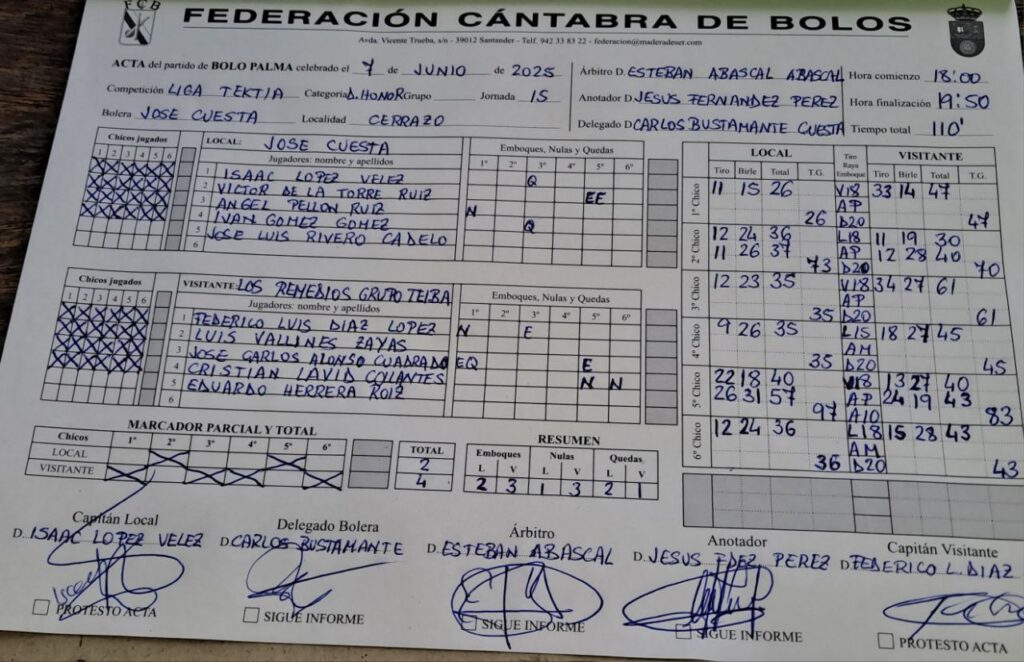 FCB
FEDERACIÓN CÁNTABRA DE BOLOS
Avda. Vicente Trueba, s/n - 39012 Santander - Telf. 942 33 83 22 - federacion@maderadeser.com
ACTA del partido de BOLO PALMA celebrado el 7 de JUNIO de 2025
Competición LIGA TEKTIA Categoría D. HONOR Grupo Jornada 15
Bolera JOSE CUESTA Localidad CERRAZO
Árbitro D. ESTEBAN ABASCAL ABASCAL Hora comienzo 18:00
Anotador D JESUS FERNANDEZ PEREZ Hora finalización 19:50
Delegado D CARLOS BUSTAMANTE CUESTA Tiempo total 110'
Chicos jugados
1 2 3 4 5 6
LOCAL: JOSE CUESTA
Jugadores: nombre y apellidos
Emboques, Nulas y Quedas
1º 2º 3º 4º 5º 6º
1 ISAAC LOPEZ VELEZ Q
2 VICTOR DE LA TORRE RUIZ EE
3 ANGEL PELLON RUIZ N
4 IVAN GOMEZ GOMEZ Q
5 JOSE LUIS RIVERO CADELO
6
Chicos jugados
1 2 3 4 5 6
VISITANTE: LOS REMEDIOS GRUPO TEIBA
Jugadores: nombre y apellidos
Emboques, Nulas y Quedas
1º 2º 3º 4º 5º 6º
1 FEDERICO LUIS DIAZ LOPEZ N E
2 LUIS VALLINES ZAYAS
3 JOSE CARLOS ALONSO CUADRADO EQ E
4 CRISTIAN LAVID COLANTES N N
5 EDUARDO HERRERA ROIZ
6
LOCAL Tiro Raya Emboque VISITANTE
Tiro Birle Total T.G. Tiro Birle Total T.G.
1º Chico 11 15 26 V18 33 14 47
AP
26 D20 47
2º Chico 12 24 36 L18 11 19 30
11 26 37 AP 12 28 40
73 D20 70
3º Chico 12 23 35 V18 34 27 61
AP
35 D20 61
4º Chico 9 26 35 L15 18 27 45
AM
35 D20 45
5º Chico 22 18 40 V18 13 27 40
26 31 57 AP 24 19 43
97 A10 83
6º Chico 12 24 36 L18 15 28 43
AM
36 D20 43
MARCADOR PARCIAL Y TOTAL
Chicos 1º 2º 3º 4º 5º 6º TOTAL
LOCAL 2
VISITANTE 4
RESUMEN
Emboques Nulas Quedas
L V L V L V
2 3 1 3 2 1
Capitán Local
D. ISAAC LOPEZ VELEZ
PROTESTO ACTA
Delegado Bolera
D CARLOS BUSTAMANTE
SIGUE INFORME
Árbitro
D. ESTEBAN ABASCAL
SIGUE INFORME
Anotador
D. JESUS FDEZ PEREZ
SIGUE INFORME
Capitán Visitante
D FEDERICO L. DIAZ
PROTESTO ACTA